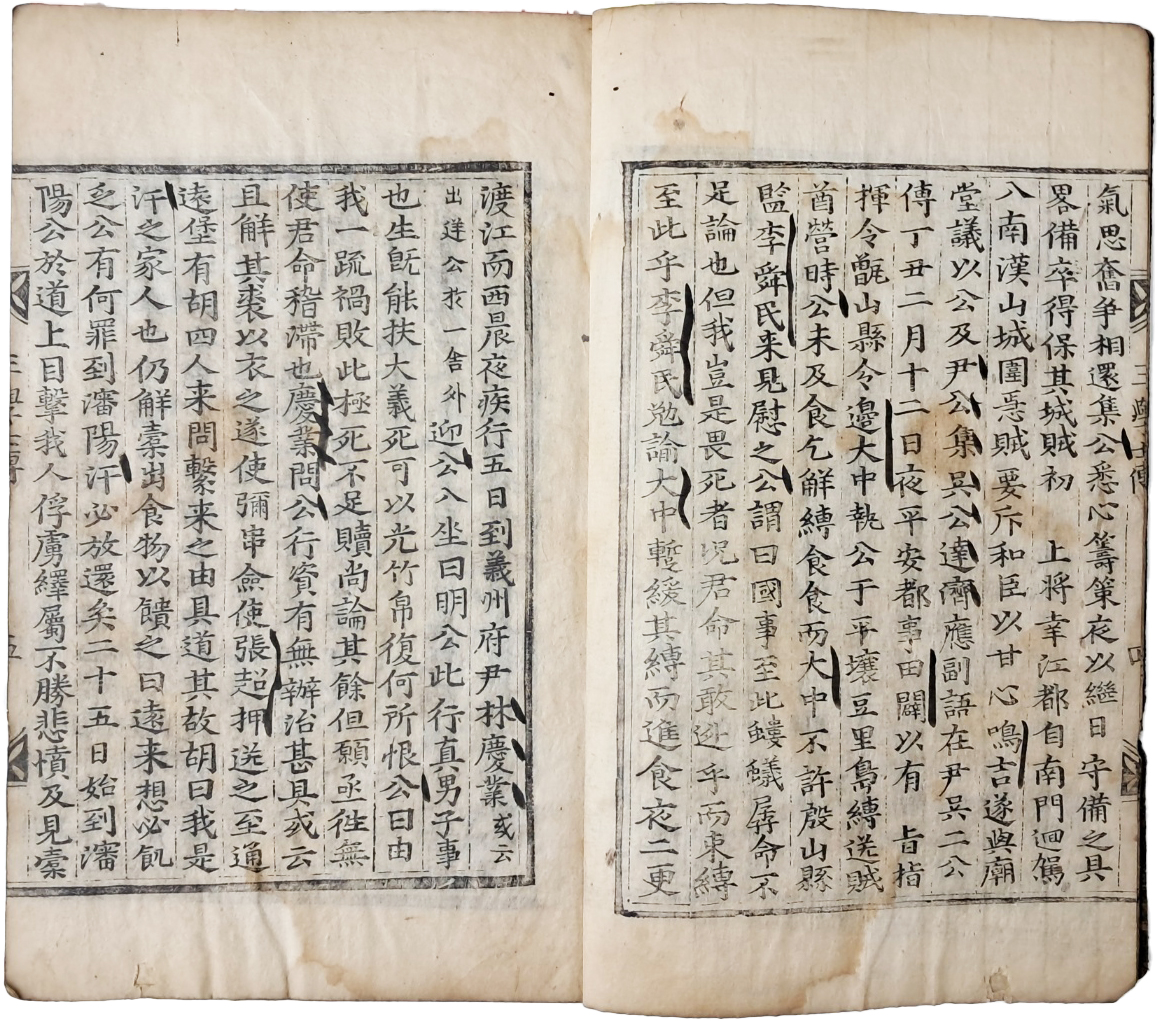 氣思奮爭相還集公悉心籌策夜以繼日守備之具
畧備卒得保其城賊初 上將幸江都自南門迴駕
入南漢山城圍急賊要斥和臣以甘心鳴吉遂與廟
堂議以公及尹公集吳公達濟應副語在尹吳二公
傳丁丑二月十二日夜平安都事田闢以有 旨指
揮令甑山縣令邊大中執公于平壤豆里島縛送賊
酋營時公未及食乞解縛食食而大中不許殷山縣
監李舜民来見慰之公謂曰國事至此螻蟻孱命不
足論也但我豈是畏死者况君命其敢逃乎而束縛
至此乎李舜民勉諭大中暫緩其縛而進食夜二更
渡江而西晨夜疾行五日到義州府尹林慶業或云
出迎公於一舍外迎公入坐曰明公此行真男子事
也生旣能扶大義死可以光竹帛復何所恨公曰由
我一疏禍敗此極死不足贖尚論其餘但願亟徃無
使君命稽滯也慶業問公行資有無辦治甚具或云
且解其裘以衣之遂使彌串僉使張超押送之至通
遠堡有胡四人来問繫来之由具道其故胡曰我是
汗之家人也仍解橐出食物以饋之曰遠来想必飢
乏公有何罪到瀋陽汗必放還矣二十五日始到瀋
陽公於道上目擊我人俘虜繹屬不勝悲憤及見橐
三學士傳